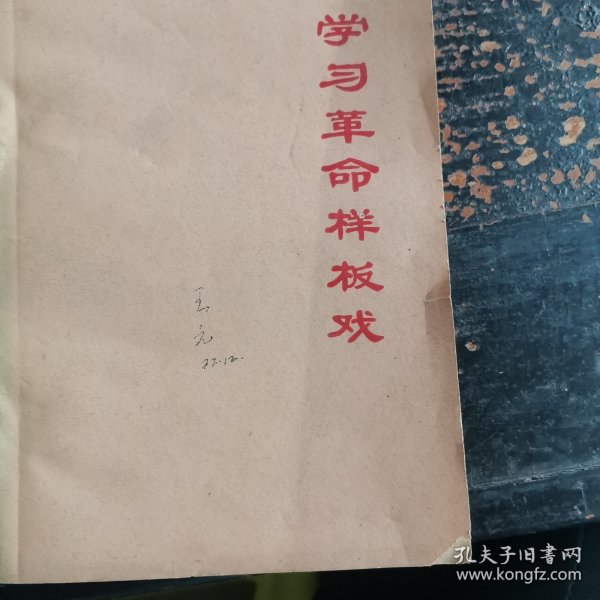 学习革命样板戏
孔夫子旧书网
www.kongfz.com